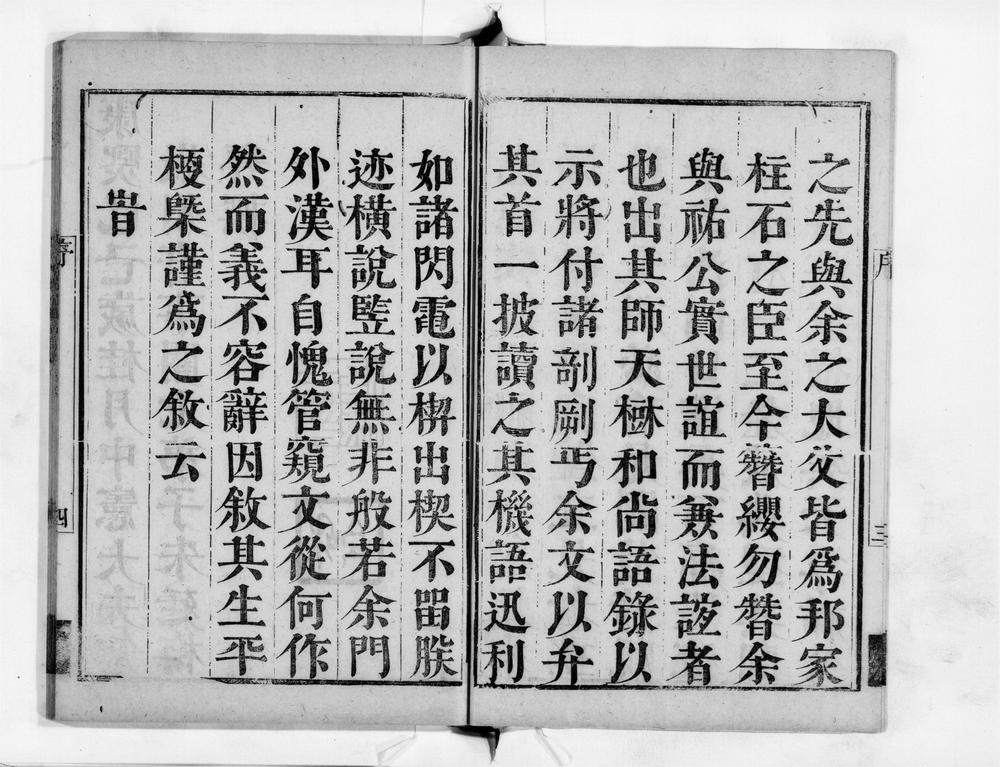 之先與余之大父皆爲邦家
柱石之臣至今簪纓勿替余
與祐公實世誼而兼法誼者
也出其師天樾和尙語錄以
示將付諸剞劂丐余文以弁
其首一披讀之其機語迅利
序
三
如諸閃電以楔出楔不畱朕
迹橫說竪說無非般若余門
外漢耳自愧管窺文從何作
然而義不容辭因敘其生平
梗槩謹爲之敘云
旹
序
四